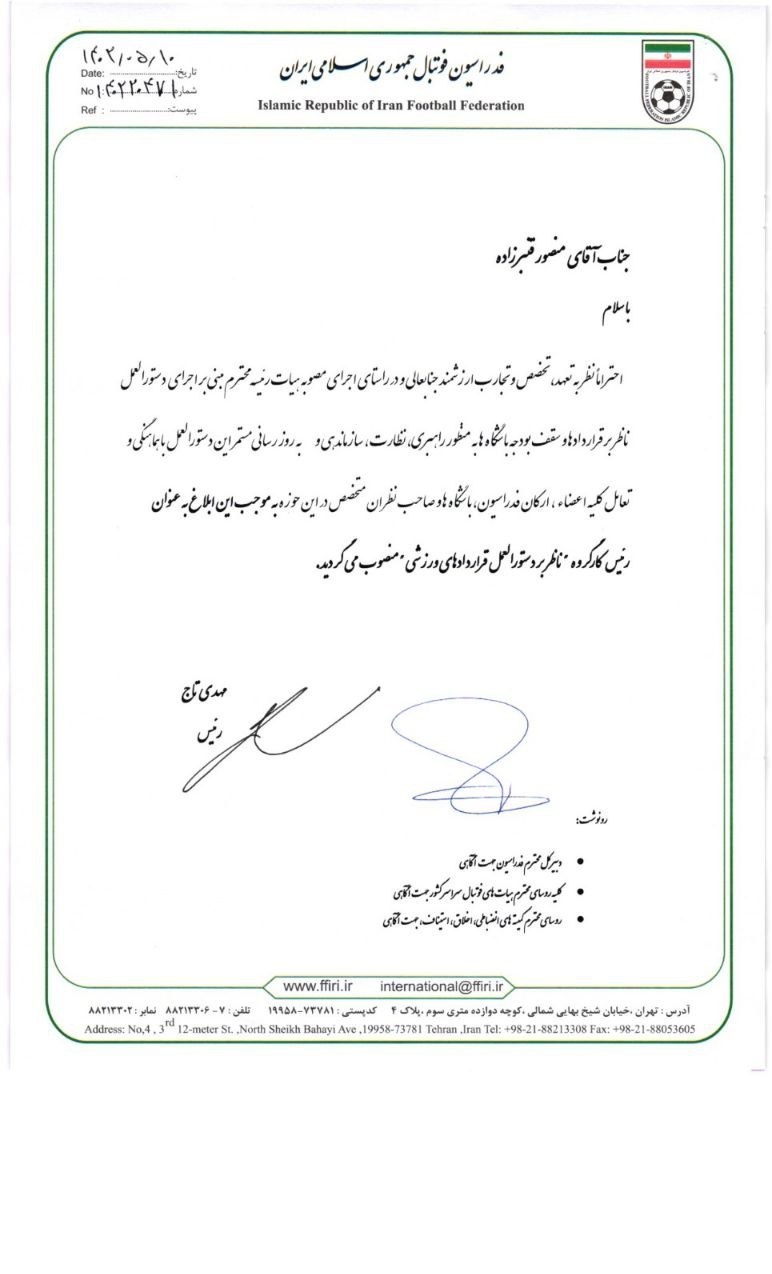 فدراسیون فوتبال جمهوری اسلامی ایران
Islamic Republic of Iran Football Federation
تاریخ:
Date:
شماره
No
پیوست:
Ref :
جناب آقای منصور قنبرزاده
باسلام
احتراماً نظر به تعهد، تخصص و تجارب ارزشمند جنابعالی و در راستای اجرای مصوبه هیات رئیسه محترم مبنی بر اجرای دستورالعمل
ناظر بر قراردادها و سقف بودجه باشگاه ها به منظور راهبری، نظارت، سازماندهی و به روز رسانی مستمر این دستورالعمل با هماهنگی و
تعامل کلیه اعضاء ، ارکان فدراسیون، باشگاه ها و صاحب نظران متخصص در این حوزه به موجب این ابلاغ به عنوان
رئیس کارگروه "ناظر بر دستورالعمل قراردادهای ورزشی" منصوب می گردید.
مهدی تاج
رئیس
رونوشت:
• دبیرکل محترم فدراسیون جهت آگاهی
• کلیه روسای محترم هیات های فوتبال سراسر کشور جهت آگاهی
• روسای محترم کمیته های انضباطی، اخلاق، استیناف، جهت آگاهی
www.ffiri.ir international@ffiri.ir
آدرس : تهران ،خیابان شیخ بهایی شمالی ،کوچه دوازده متری سوم ،پلاک ۴ کدپستی : ۷۳۷۸۱-۱۹۹۵۸ تلفن : ۷ - ۸۸۲۱۳۳۰۶ نمابر : ۸۸۲۱۳۳۰۲
Address: No,4 , 3rd 12-meter St. ,North Sheikh Bahayi Ave ,19958-73781 Tehran ,Iran Tel: +98-21-88213308 Fax: +98-21-88053605